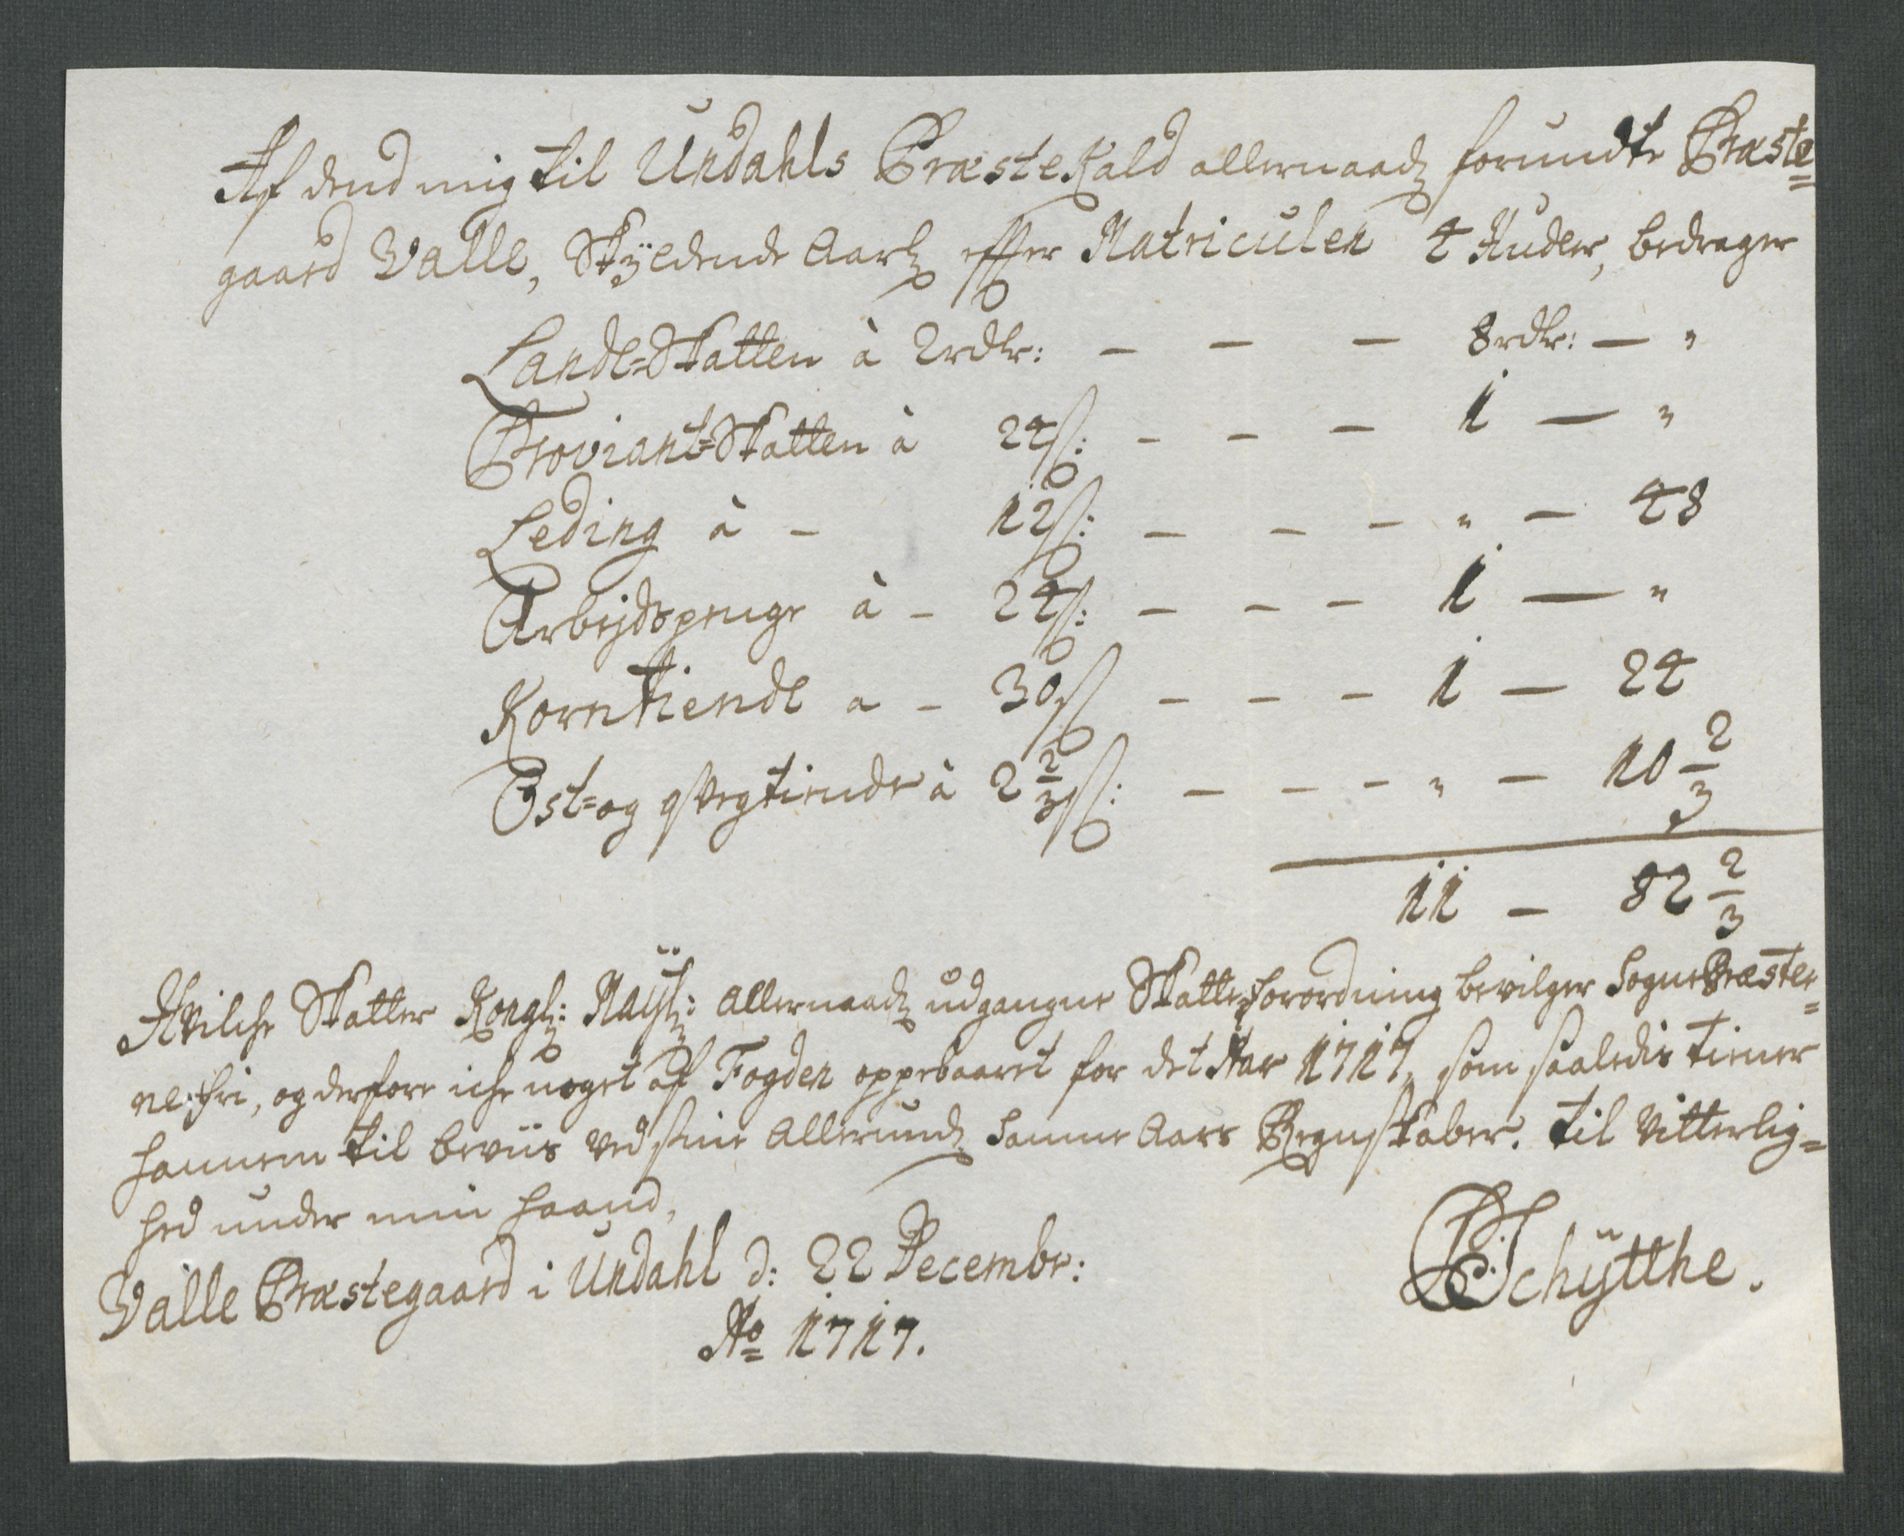 Af dend mig til Undahls PræsteKald allernaadₓ forundte Præste=
gaard Valle, Skÿldende Aarlₓ effter Matriculen 4 Huder, bedrager
Lande=Skatten à 2 rdlr: — — — 8 rdlr: — "
Proviant=Skatten à 24 ß: — — — 1 — "
Leding à — 12 ß: — — — " — 48
Arbejdspenge à — 24 ß: — — — 1 — "
Korntiende a — 30 ß — — — 1 — 24
Ost= og qvegtiende à 2 2/3 ß: — — — " — 10 2/3
11 — 82 2/3
Hvilche Skatter Kongl: Maÿtₓ: allernaadₓ udgangne Skatte forordning bevilger SognePræster=
ne fri, og derfore iche noget af Fogden oppebaaret for det Aar 1717, som saaledis tiener
hannem til beviis ved sine allerundₓ samme Aars Regnskaber. til Vitterlig=
hed under min haand,
Valle Præstegaard i Undahl d: 22 Decembr:
Ao 1717.
PSchÿtthe.